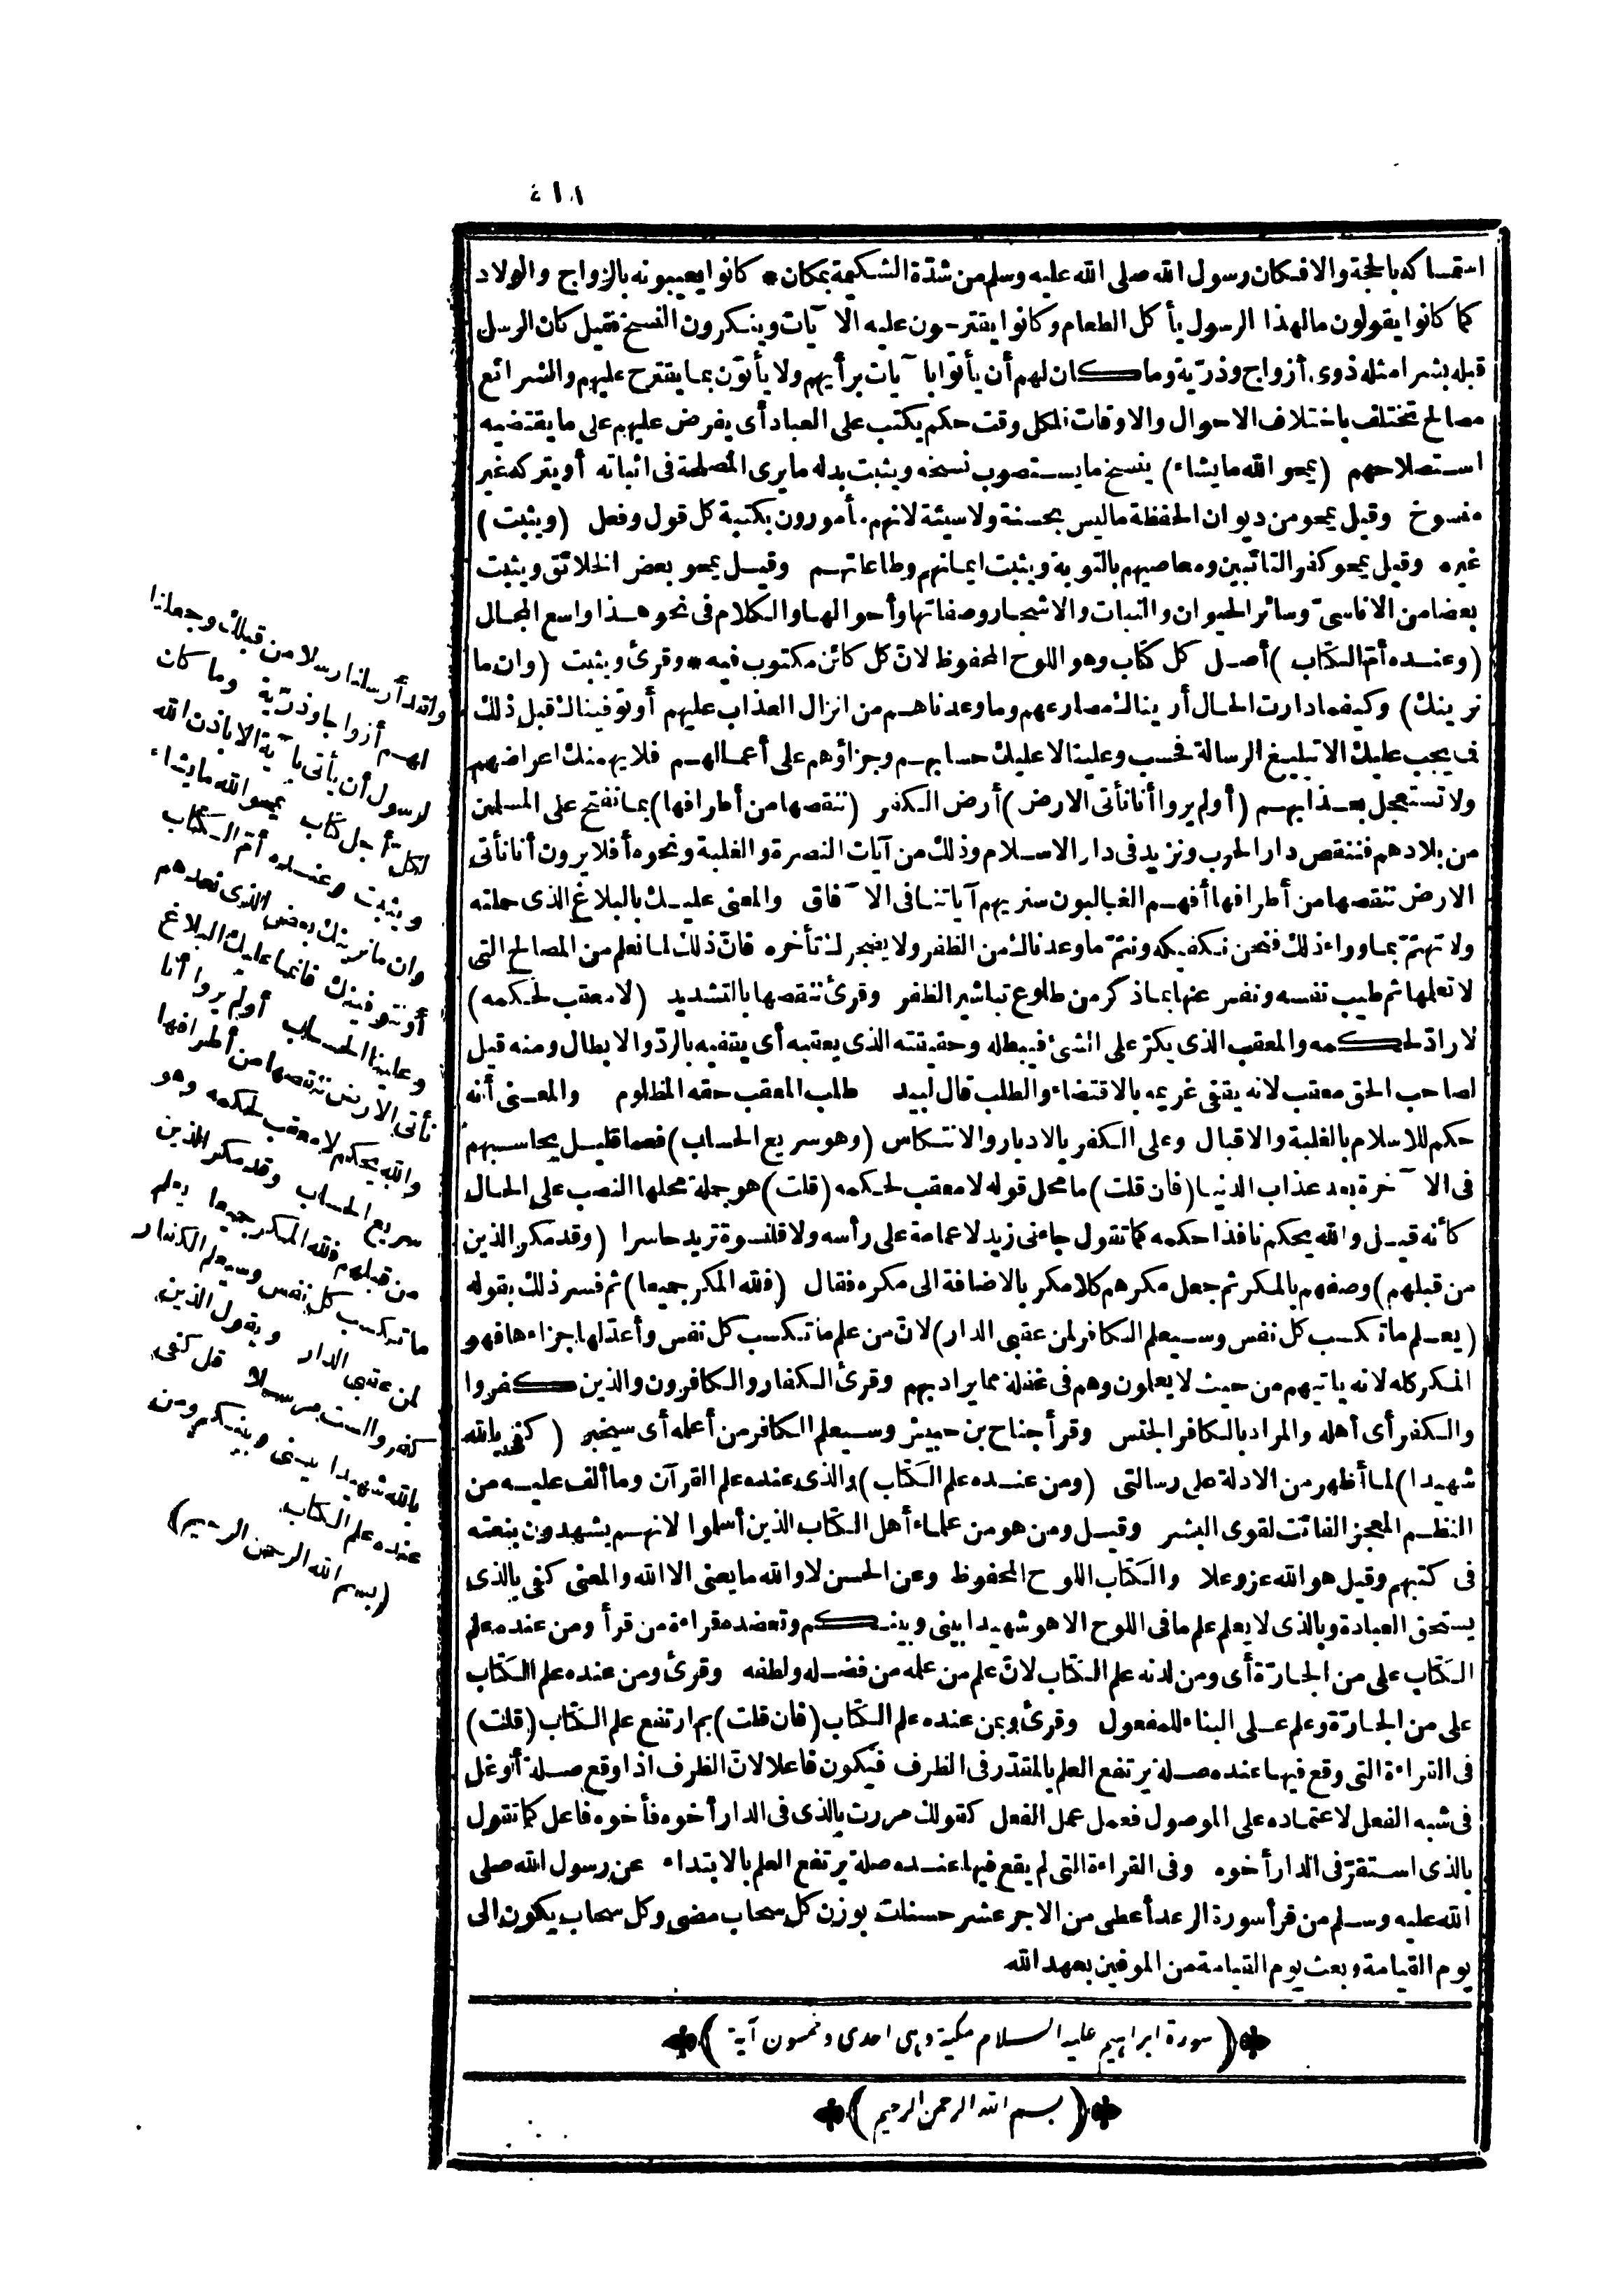 ٤١١
استمساكه بالحجة والافكان رسول الله صلى الله عليه وسلم من شدّة الشكيمة بمكان * كانوا يعيبونه بالزواج والولاد
كما كانوا يقولون مالهذا الرسول يأكل الطعام وكانوا يقترحون عليه الآيات وينكرون النسخ فقيل كان الرسل
قبله بشرا مثله ذوى أزواج وذرّية وما كان لهم أن يأتوا بآيات برأيهم ولا يأتون بما يقترح عليهم والشرائع
مصالح تختلف باختلاف الاحوال والاوقات فلكل وقت حكم يكتب على العباد أى يفرض عليهم على ما يقتضيه
استصلاحهم (يمحو الله ما يشاء) ينسخ ما يستصوب نسخه ويثبت بدله ما يرى المصلحة فى اثباته أو يتركه غير
منسوخ وقيل يمحو من ديوان الحفظة ما ليس بحسنة ولا سيئة لانهم مأمورون بكتبة كل قول وفعل (ويثبت)
غيره وقيل يمحو كفر التائبين ومعاصيهم بالتوبة ويثبت ايمانهم وطاعاتهم وقيل يمحو بعض الخلائق ويثبت
بعضا من الاناسىّ وسائر الحيوان والنبات والاشجار وصفاتها وأحوالها والكلام فى نحو هذا واسع المجال
(وعنده أمّ الكتاب) أصل كل كتاب وهو اللوح المحفوظ لانّ كل كائن مكتوب فيه * وقرئ ويثبت (وان ما
نرينك) وكيفما دارت الحال أريناك مصارعهم وما وعدناهم من انزال العذاب عليهم أو توفيناك قبل ذلك
فما يجب عليك الا تبليغ الرسالة فحسب وعلينا لا عليك حسابهم وجزاؤهم على أعمالهم فلا يهمنك اعراضهم
ولا تستعجل بعذابهم (أولم يروا أنا نأتى الارض) أرض الكفر (ننقصها من أطرافها) بما نفتح على المسلمين
من بلادهم فننقص دار الحرب ونزيد فى دار الاسلام وذلك من آيات النصرة والغلبة ونحوه أفلا يرون أنا نأتى
الارض ننقصها من أطرافها أفهم الغالبون سنريهم آياتنا فى الآفاق والمعنى عليك بالبلاغ الذى حملته
ولا تهتمّ بما وراء ذلك فنحن نكفيكه ونتمّ ما وعدناك من الظفر ولا يضجرك تأخره فانّ ذلك لما نعلم من المصالح التى
لا تعلمها ثم طيب نفسه ونفس عنها بما ذكر من طلوع تباشير الظفر وقرئ ننقصها بالتشديد (لا معقب لحكمه)
لا رادّ لحكمه والمعقب الذى يكرّ على الشئ فيبطله وحقيقته الذى يعقبه أى يقفيه بالردّ والابطال ومنه قيل
لصاحب الحق معقب لانه يقفى غريمه بالاقتضاء والطلب قال لبيد طلب المعقب حقه المظلوم والمعنى أنه
حكم للاسلام بالغلبة والاقبال وعلى الكفر بالادبار والانتكاس (وهو سريع الحساب) فعما قليل يحاسبهم
فى الآخرة بعد عذاب الدنيا (فان قلت) ما محل قوله لا معقب لحكمه (قلت) هو جملة محلها النصب على الحال
كأنه قيل والله يحكم نافذا حكمه كما تقول جاءنى زيد لا عمامة على رأسه ولا قلنسوة تريد حاسرا (وقد مكر الذين
من قبلهم) وصفهم بالمكر ثم جعل مكرهم كلا مكر بالاضافة الى مكره فقال (فلله المكر جميعا) ثم فسر ذلك بقوله
(يعلم ما تكسب كل نفس وسيعلم الكافر لمن عقبى الدار) لانّ من علم ما تكسب كل نفس وأعدّ لها جزاءها فهو
المكر كله لانه يأتيهم من حيث لا يعلمون وهم فى غفلة عما يراد بهم وقرئ الكفار والكافرون والذين كفروا
والكفر أى أهله والمراد بالكافر الجنس وقرأ جناح بن حبيش وسيعلم الكافر من أعلمه أى سيخبر (كفى بالله
شهيدا) لما أظهر من الادلة على رسالتى (ومن عنده علم الكتاب) والذى عنده علم القرآن وما ألف عليه من
النظم المعجز الفائت لقوى البشر وقيل ومن هو من علماء أهل الكتاب الذين أسلموا لانهم يشهدون بنعته
فى كتبهم وقيل هو الله عز وعلا والكتاب اللوح المحفوظ وعن الحسن لا والله ما يعنى الا الله والمعنى كفى بالذى
يستحق العبادة وبالذى لا يعلم علم ما فى اللوح الا هو شهيدا بينى وبينكم وتعضده قراءة من قرأ ومن عنده علم
الكتاب على من الجارّة أى ومن لدنه علم الكتاب لانّ علم من علمه من فضله ولطفه وقرئ ومن عنده علم الكتاب
على من الجارّة وعلم على البناء للمفعول وقرئ وبمن عنده علم الكتاب (فان قلت) بم ارتفع علم الكتاب (قلت)
فى القراءة التى وقع فيها عنده صلة يرتفع العلم بالمقدّر فى الظرف فيكون فاعلا لانّ الظرف اذا وقع صلة أوغل
فى شبه الفعل لاعتماده على الموصول فعمل عمل الفعل كقولك مررت بالذى فى الدار أخوه فأخوه فاعل كما تقول
بالذى استقرّ فى الدار أخوه وفى القراءة التى لم يقع فيها عنده صلة يرتفع العلم بالابتداء عن رسول الله صلى
الله عليه وسلم من قرأ سورة الرعد أعطى من الاجر عشر حسنات بوزن كل سحاب مضى وكل سحاب يكون الى
يوم القيامة وبعث يوم القيامة من الموفين بعهد الله
(سورة ابراهيم عليه السلام مكية وهى احدى وخمسون آية)
(بسم الله الرحمن الرحيم)
ولقد أرسلنا رسلا من قبلك وجعلنا
لهم أزواجا وذرّية وما كان
لرسول أن يأتى بآية الا باذن الله
لكل أجل كتاب يمحو الله ما يشاء
ويثبت وعنده أمّ الكتاب
وان ما نرينك بعض الذى نعدهم
أو نتوفينك فانما عليك البلاغ
وعلينا الحساب أولم يروا أنا
نأتى الارض ننقصها من أطرافها
والله يحكم لا معقب لحكمه وهو
سريع الحساب وقد مكر الذين
من قبلهم فلله المكر جميعا يعلم
ما تكسب كل نفس وسيعلم الكفار
لمن عقبى الدار ويقول الذين
كفروا لست مرسلا قل كفى
بالله شهيدا بينى وبينكم ومن
عنده علم الكتاب
(بسم الله الرحمن الرحيم)